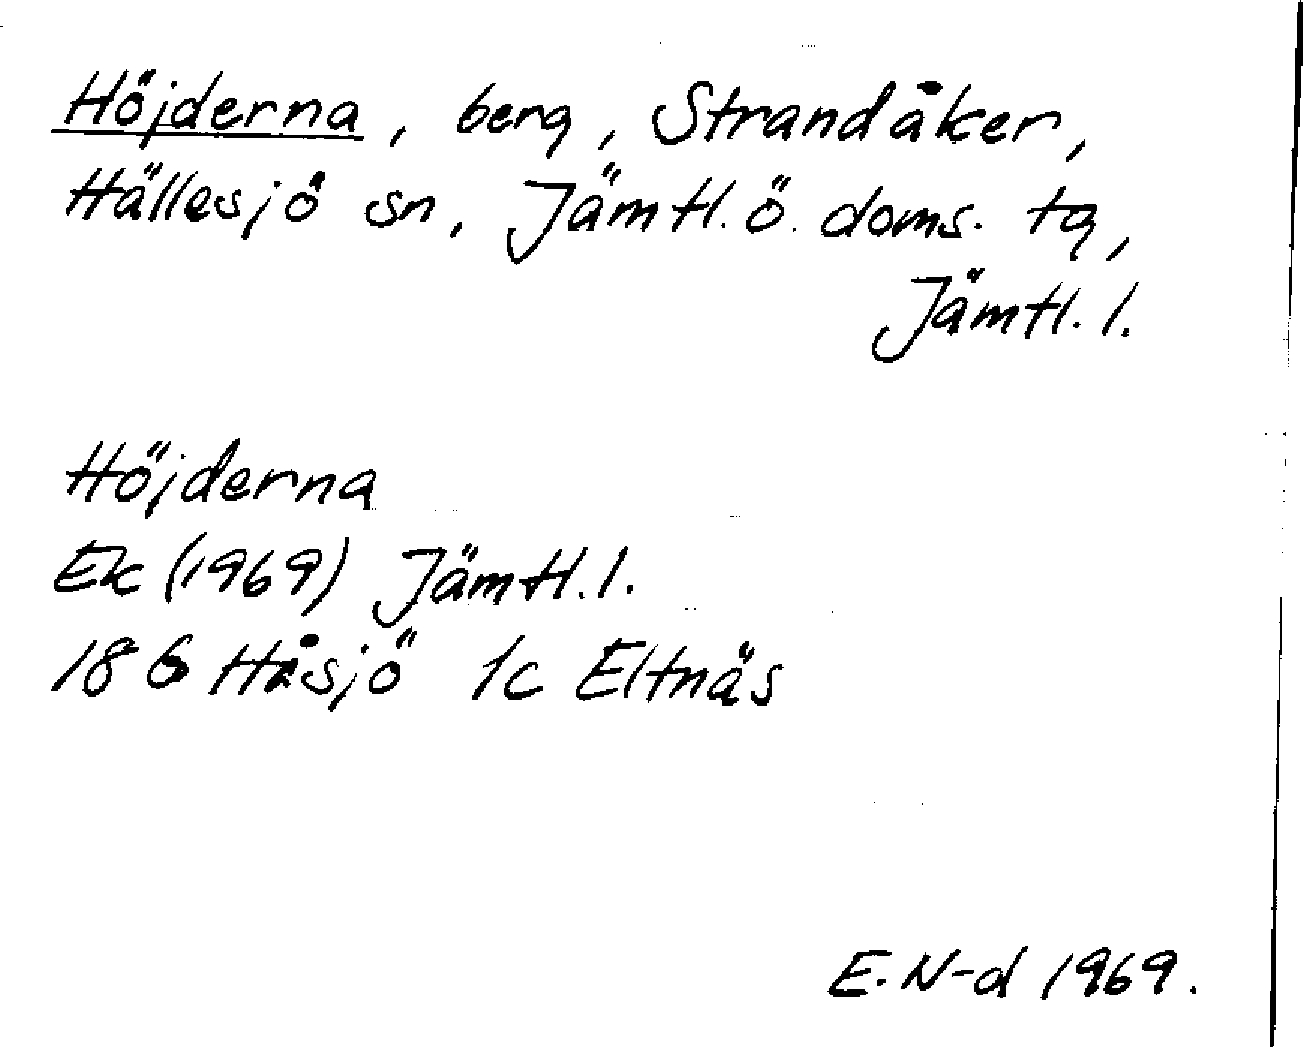 Höjderna, berg, Strandåker,
Hällesjö sn, Jämtl. ö. doms. tg,
Jämtl. l.
Höjderna
Ek (1969) Jämtl. l.
186 Håsjö 1c Eltnäs
E. N-d 1969.